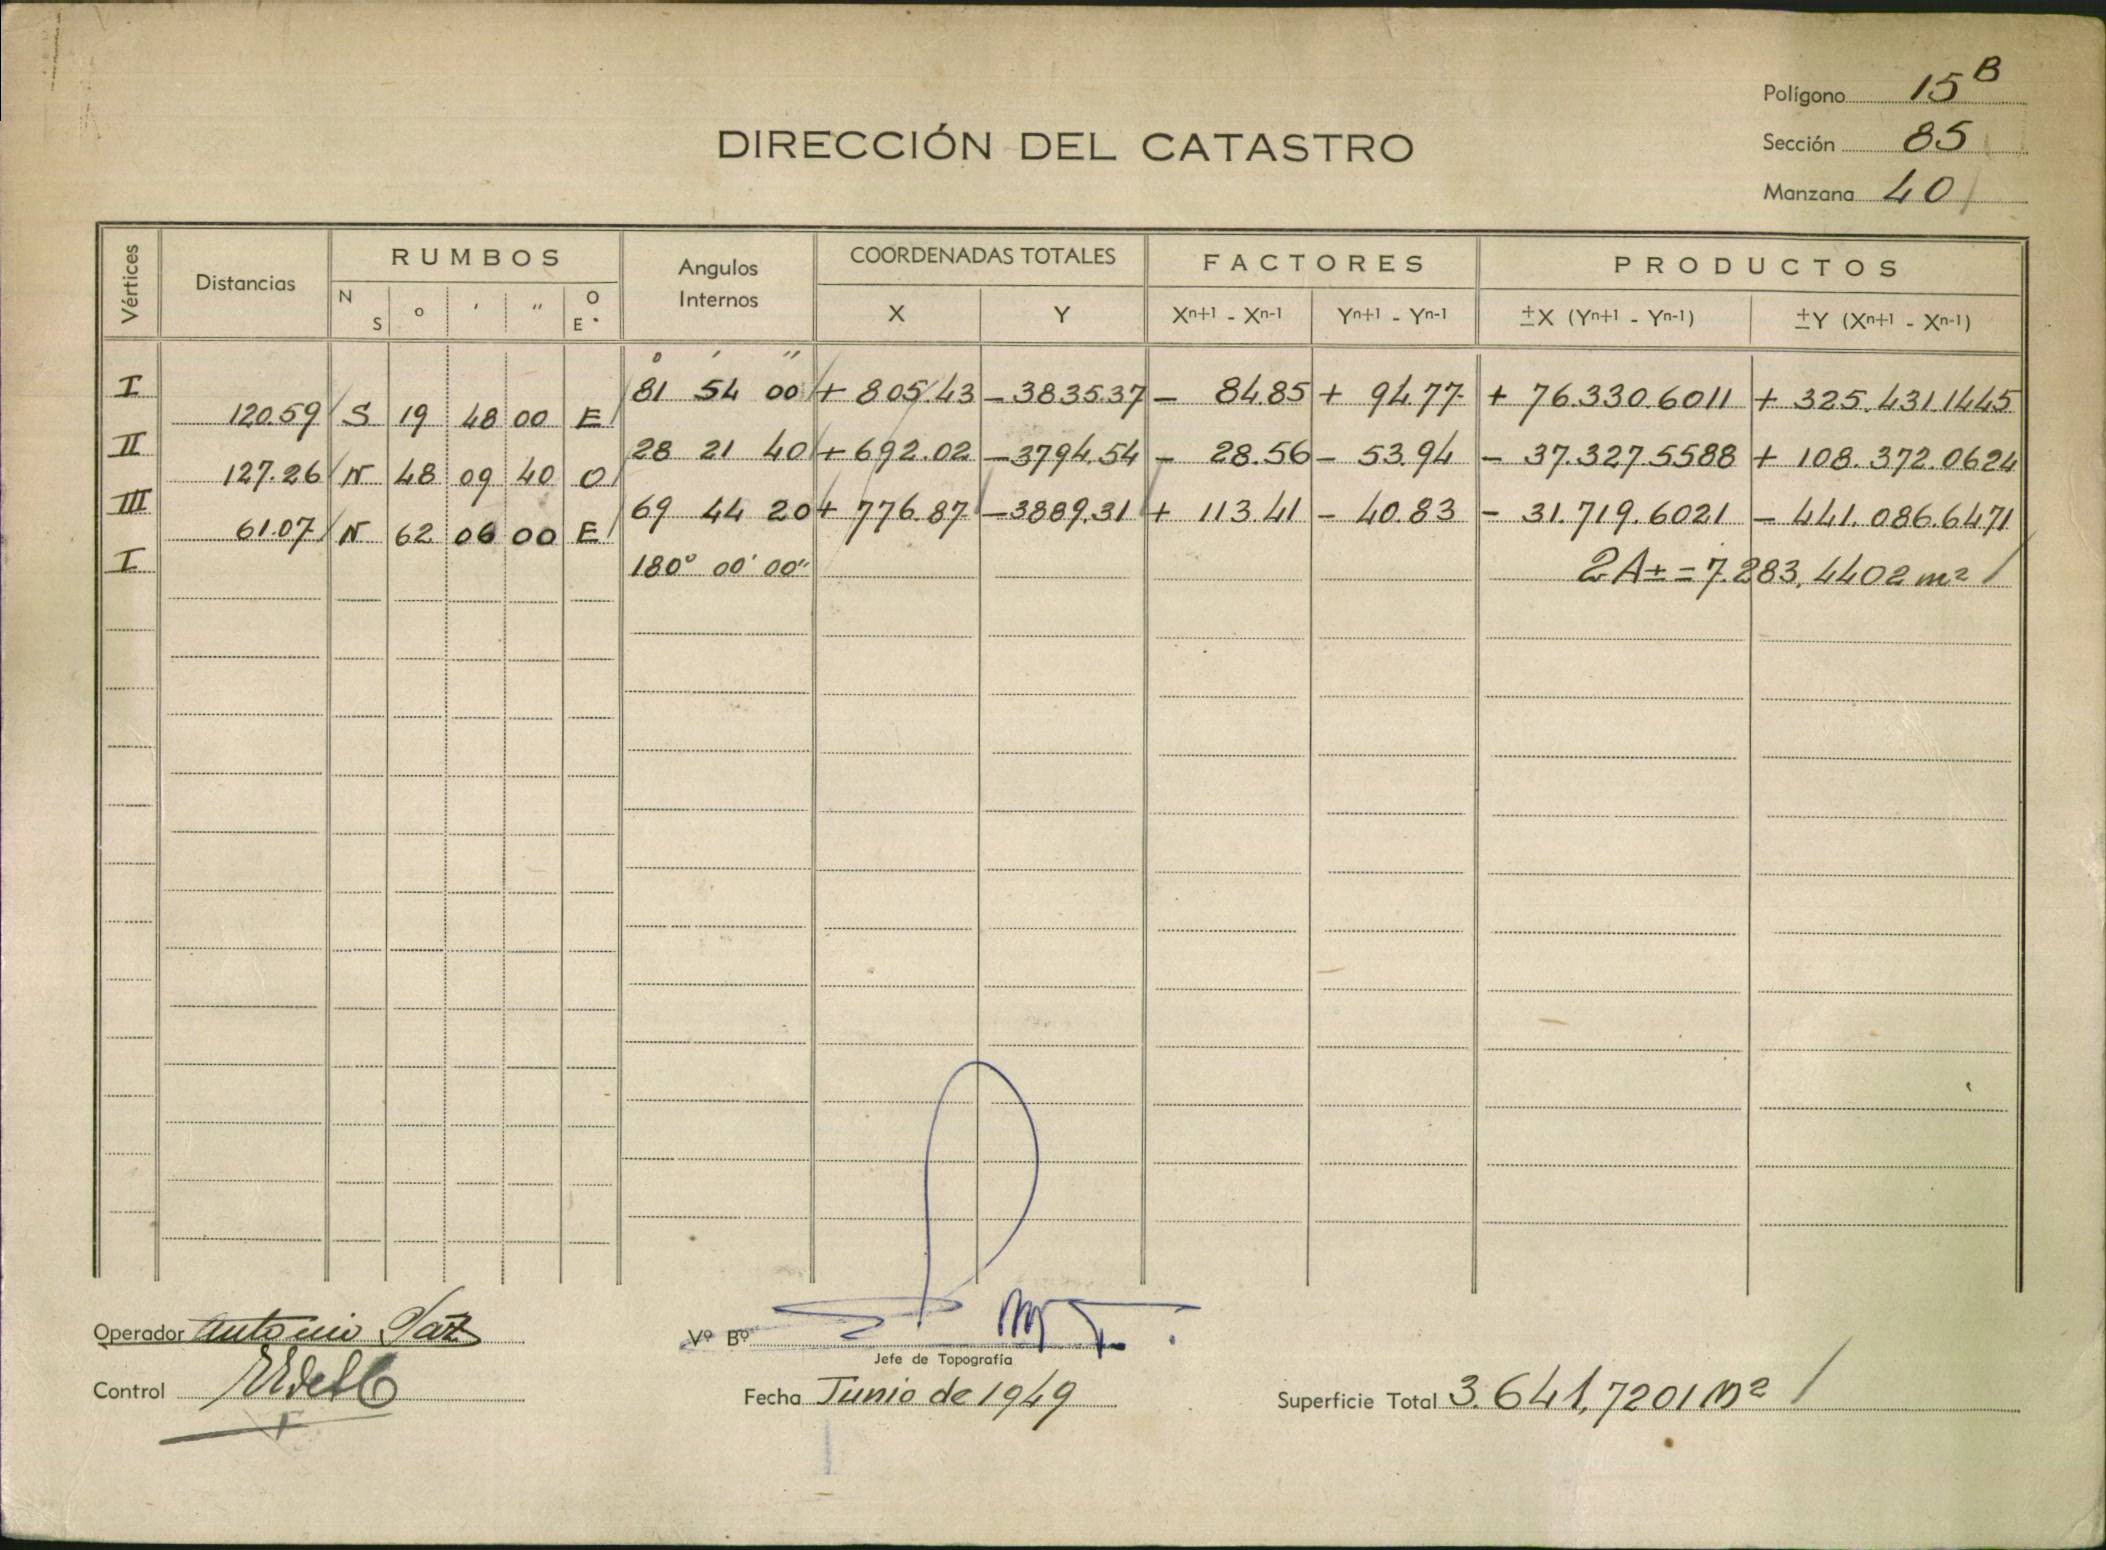 Polígono 15 B
DIRECCIÓN DEL CATASTRO
Sección 85
Manzana 40
Vértices Distancias RUMBOS Angulos Internos COORDENADAS TOTALES FACTORES PRODUCTOS
N S o ' " O E X Y Xn+1 - Xn-1 Yn+1 - Yn-1 ±X (Yn+1 - Yn-1) ±Y (Xn+1 - Xn-1)
o ' "
I 81 54 00 + 805.43 - 3835.37 - 84.85 + 94.77 + 76.330.6011 + 325.431.1445
120.59 S 19 48 00 E
II 28 21 40 + 692.02 - 3794.54 - 28.56 - 53.94 - 37.327.5588 + 108.372.0624
127.26 N 48 09 40 O
III 69 44 20 + 776.87 - 3889.31 + 113.41 - 40.83 - 31.719.6021 - 441.086.6471
61.07 N 62 06 00 E
I 180° 00' 00" 2A± = 7.283,4402 m²
Operador Antonio Paz
Vº Bº
Jefe de Topografía
Control
Fecha Junio de 1949
Superficie Total 3.641,7201 m²